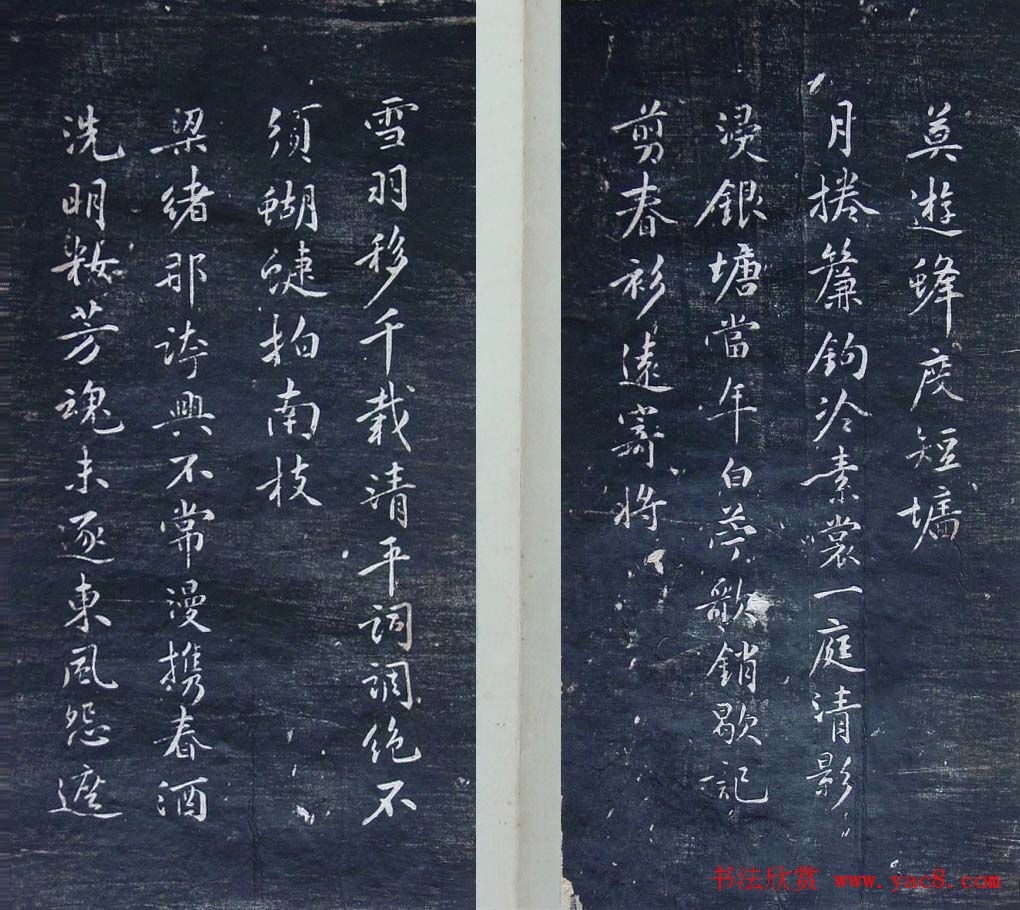 莫遊蜂度短墻
月捲簾鉤冷素裳一庭清影
浸銀塘當年白苧歌銷歇記
剪春衫遠寄將
雪羽移千栽清平詞調絶不
須蝴蝶拍南枝
梁緒那誇興不常漫携春酒
洗明粧芳魂未逐東風怨遮
书法欣赏 www.yac8.com